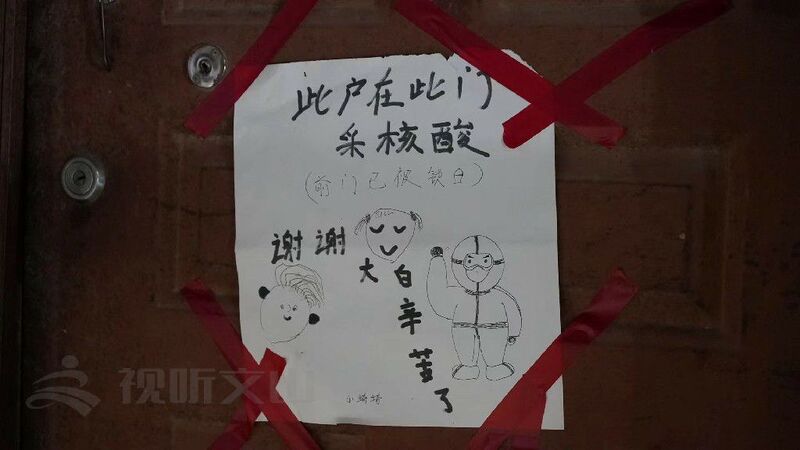 此户在此门
采核酸
(前门已被锁)
谢谢
大白辛苦了
视听文山